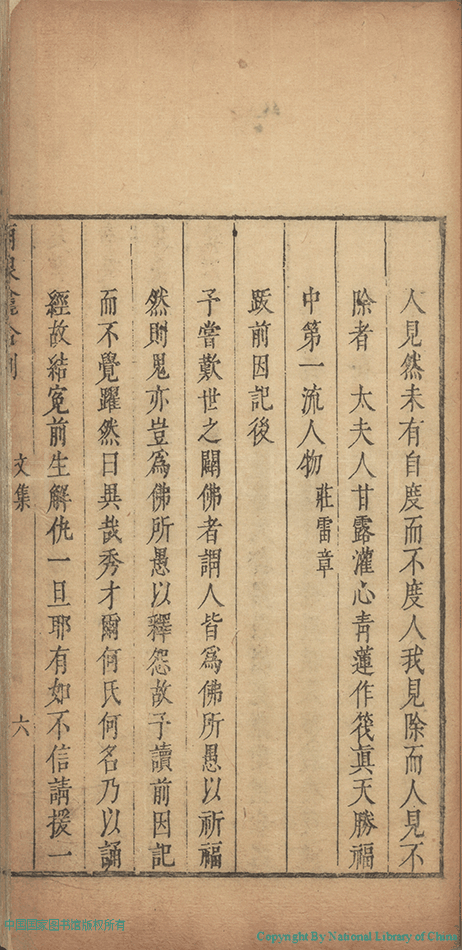 人見然未有自度而不度人我見除而人見不
除者　太夫人甘露灌心青蓮作筏真天勝福
中第一流人物莊雷章
跋前因記後
予嘗歎世之闢佛者謂人皆為佛所愚以祈福
然則鬼亦豈為佛所愚以釋怨故予讀前因記
而不覺躍然曰異哉秀才爾何氏何名乃以誦
經故結冤前生解仇一旦耶有如不信請援一
文集　六
中国国家图书馆版权所有
Copyright By National Library of China